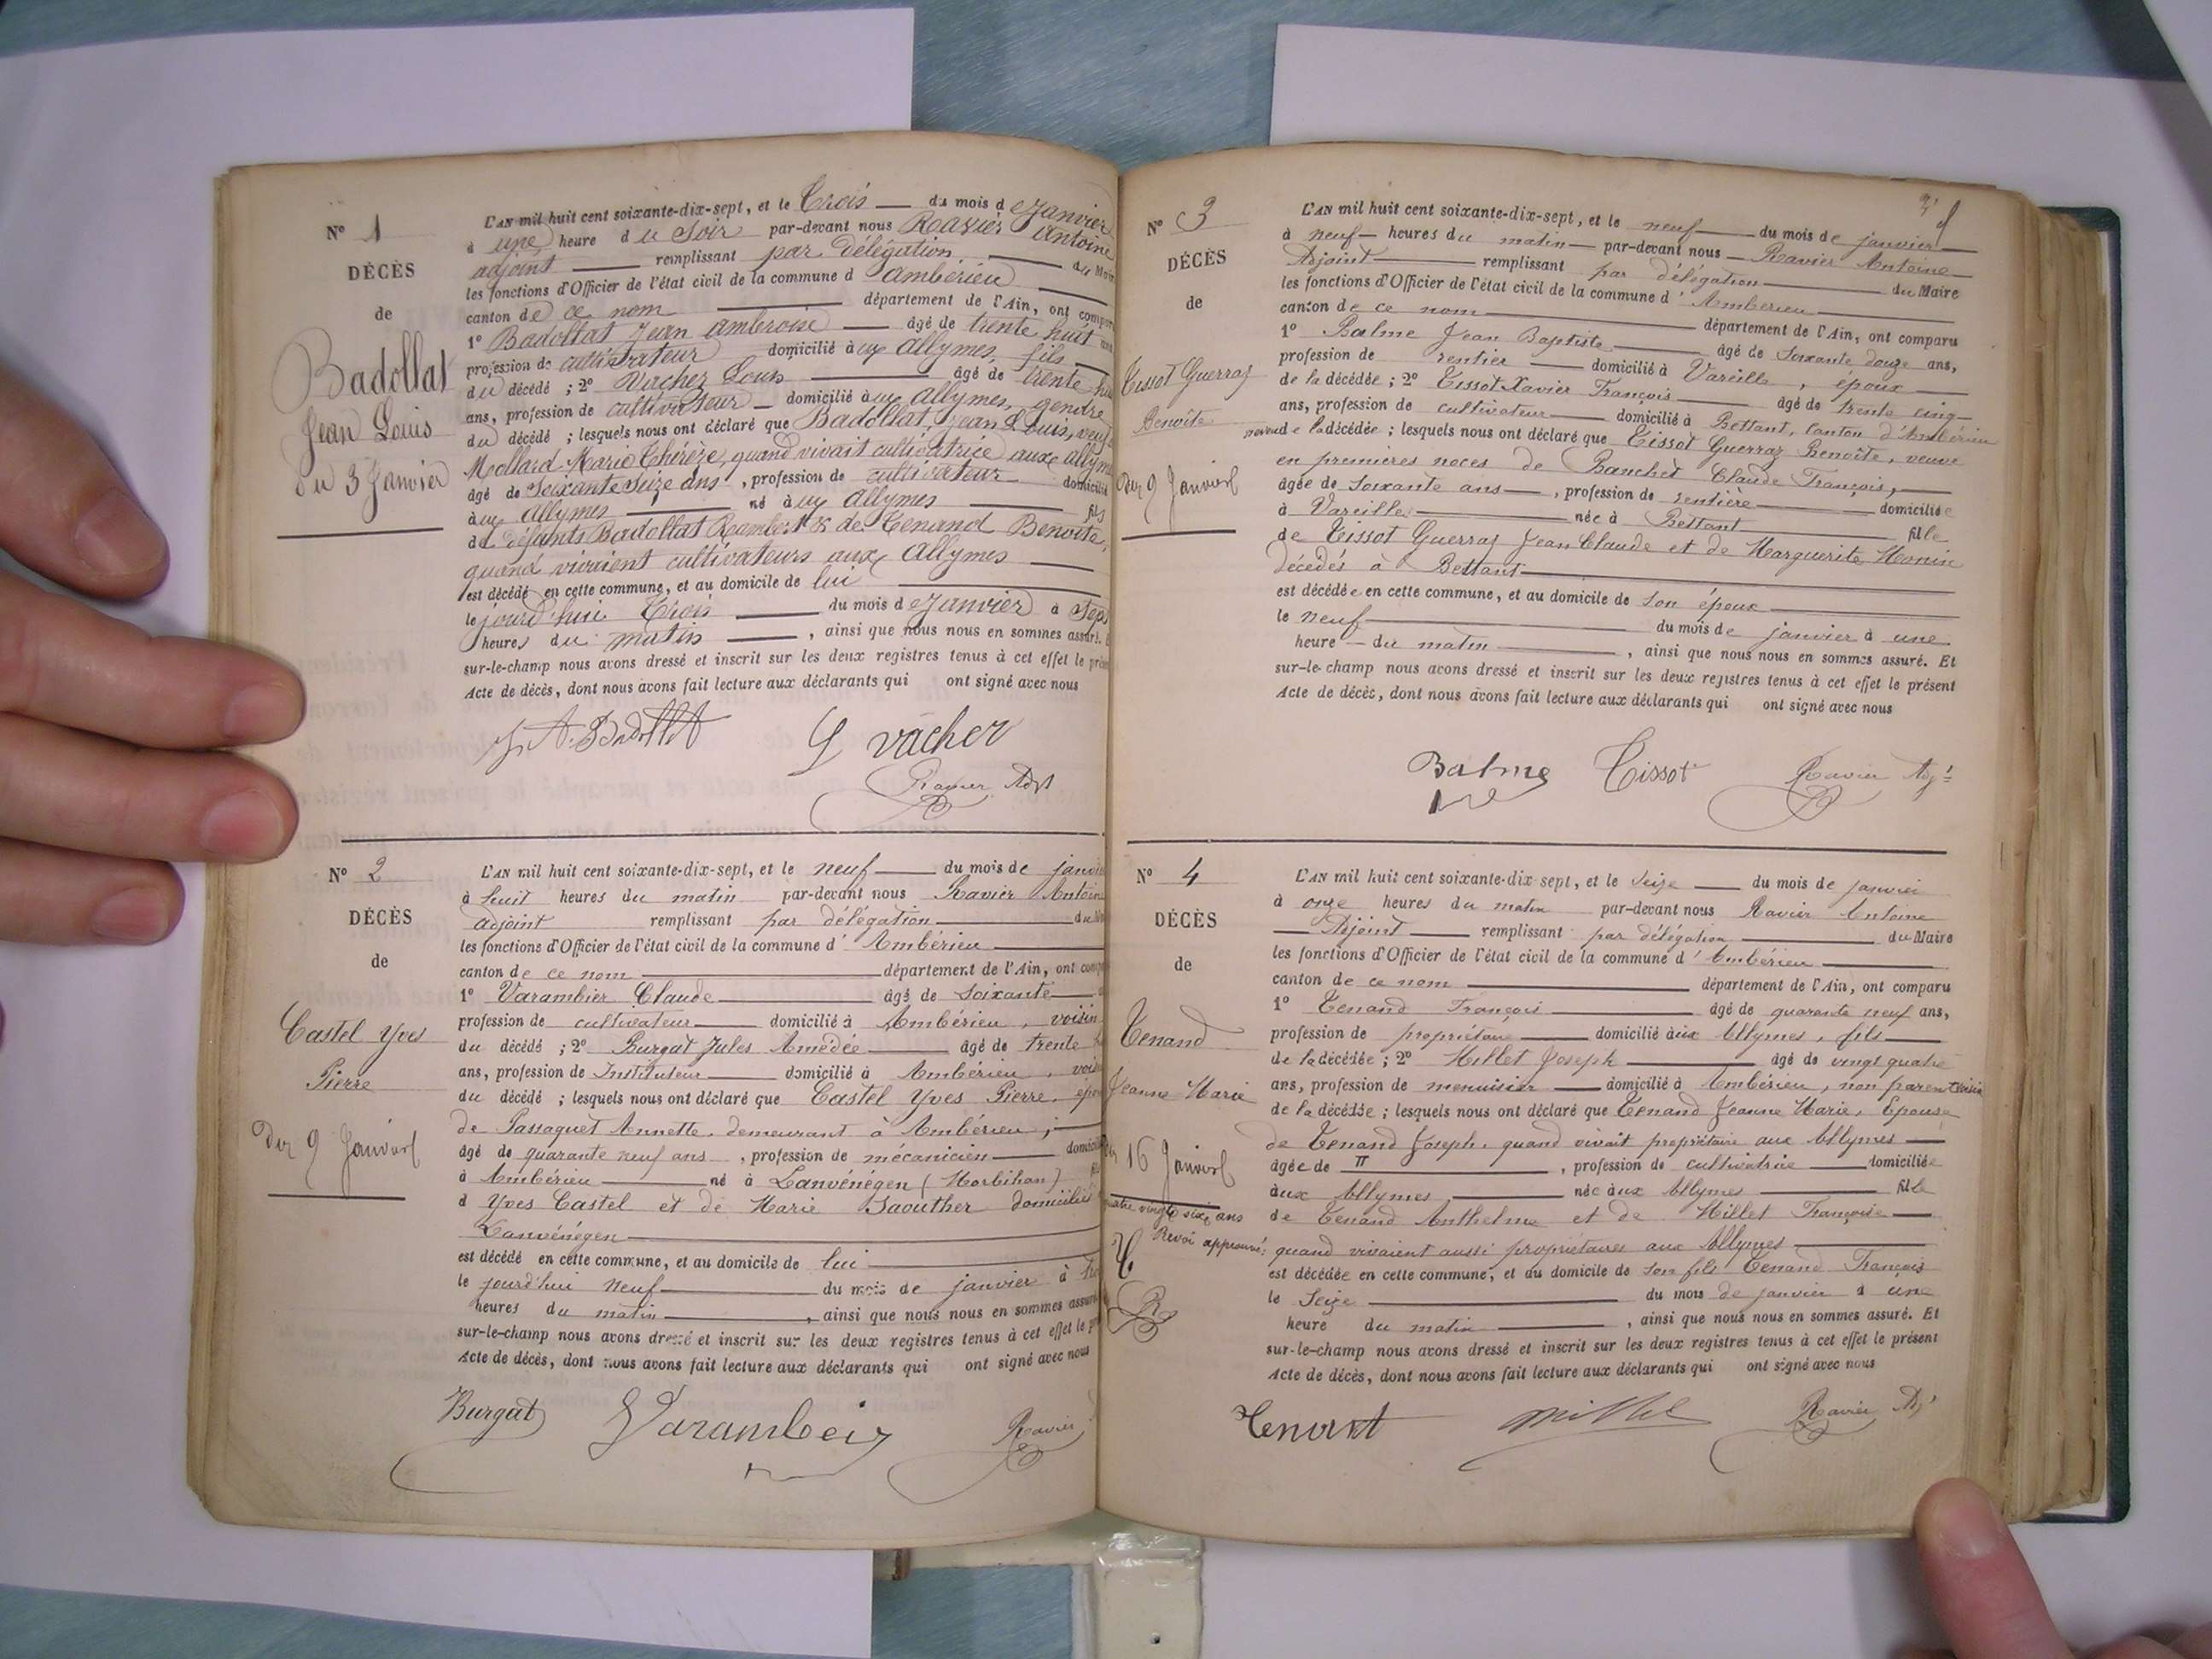 Nº 1
DÉCÈS
de
Badollat
Jean Louis
du 3 Janvier
L'AN mil huit cent soixante-dix-sept, et le Trois du mois de Janvier
à une heure du Soir par-devant nous Ravier Antoine
adjoint remplissant par délégation du Maire
les fonctions d'Officier de l'état civil de la commune d'Ambérieu
canton de ce nom département de l'Ain, ont compar
1º Badollat Jean Ambroise âgé de trente huit ans
profession de cultivateur domicilié aux Allymes, fils
du décédé ; 2º Louis âgé de trente
ans, profession de cultivateur domicilié aux Allymes, gendre
du décédé ; lesquels nous ont déclaré que Badollat, Jean Louis, veuf
Mollard Marie Thérèze, quand vivait cultivatrice aux Allymes
âgé de Soixante Seize ans, profession de cultivateur domicilié
aux Allymes né aux Allymes fils
de défunts Badollat Rambert & de Tenand Benoite,
quand vivaient cultivateurs aux Allymes
est décédé en cette commune, et au domicile de lui
le jourd'hui Trois du mois de Janvier à Sept
heures du matin, ainsi que nous nous en sommes assuré. E
sur-le-champ nous avons dressé et inscrit sur les deux registres tenus à cet effet le prése
Acte de décès, dont nous avons fait lecture aux déclarants qui ont signé avec nous
J. A. Badollat
L vacher
Ravier Adjt
Nº 2
DÉCÈS
de
Castel Yves
Pierre
Du 9 Janvier
L'AN mil huit cent soixante-dix-sept, et le neuf du mois de janvie
à huit heures du matin par-devant nous Ravier Antoine
adjoint remplissant par délégation du
les fonctions d'Officier de l'état civil de la commune d'Ambérieu
canton de ce nom département de l'Ain, ont comp
1º Varambier Claude âgé de soixante
profession de cultivateur domicilié à Ambérieu, voisin
du décédé ; 2º Burgat Jules Amédée âgé de trente
ans, profession de Instituteur domicilié à Ambérieu, vois
du décédé ; lesquels nous ont déclaré que Castel Yves Pierre, épou
de Passaquet Annette, demeurant à Ambérieu ;
âgé de quarante neuf ans, profession de mécanicien domicilié
à Ambérieu né à Lanvénégen (Morbihan)
d Yves Castel et de Marie Saouther domiciliés
Lanvénégen
est décédé en cette commune, et au domicile de lui
le jourd'hui neuf du mois de janvier à
heures du matin, ainsi que nous nous en sommes assuré
sur-le-champ nous avons dressé et inscrit sur les deux registres tenus à cet effet le p
Acte de décès, dont nous avons fait lecture aux déclarants qui ont signé avec nous
Burgat
Varambier
Ravier
Nº 3
DÉCÈS
de
Tissot Guerraz
Benoîte
Du 9 Janvier
L'AN mil huit cent soixante-dix-sept, et le neuf du mois de janvier
à neuf heures du matin par-devant nous Ravier Antoine
Adjoint remplissant par délégation du Maire
les fonctions d'Officier de l'état civil de la commune d'Ambérieu
canton de ce nom département de l'Ain, ont comparu
1º Balme Jean Baptiste âgé de soixante douze ans,
profession de rentier domicilié à Vareille, époux
de la décédée ; 2º Tissot Xavier François âgé de trente cinq
ans, profession de cultivateur domicilié à Bettant, canton d'Ambérieu
neveu de la décédée ; lesquels nous ont déclaré que Tissot Guerraz Benoîte, veuve
en premières noces de Banchet Claude François,
âgée de soixante ans, profession de rentière domiciliée
à Vareilles née à Bettant fille
de Tissot Guerraz Jean Claude et de Marguerite Monin
décédés à Bettant
est décédée en cette commune, et au domicile de son époux
le neuf du mois de janvier à une
heure du matin, ainsi que nous nous en sommes assuré. Et
sur-le-champ nous avons dressé et inscrit sur les deux registres tenus à cet effet le présent
Acte de décès, dont nous avons fait lecture aux déclarants qui ont signé avec nous
Balme
Tissot
Ravier Adjt
Nº 4
DÉCÈS
de
Tenand
Jeanne Marie
Du 16 Janvier
quatre vingt six ans
Renvoi approuvé:
T
R
L'AN mil huit cent soixante-dix-sept, et le seize du mois de janvier
à onze heures du matin par-devant nous Ravier Antoine
Adjoint remplissant par délégation du Maire
les fonctions d'Officier de l'état civil de la commune d'Ambérieu
canton de ce nom département de l'Ain, ont comparu
1º Tenand François âgé de quarante neuf ans,
profession de propriétaire domicilié aux Allymes, fils
de la décédée ; 2º Millet Joseph âgé de vingt quatre
ans, profession de menuisier domicilié à Ambérieu, non parent voisin
de la décédée ; lesquels nous ont déclaré que Tenand Jeanne Marie, Epouse
de Tenand Joseph, quand vivait propriétaire aux Allymes
âgée de, profession de cultivatrice domiciliée
aux Allymes, née aux Allymes fille
de Tenand Anthelme et de Millet Françoise
quand vivaient aussi propriétaires aux Allymes
est décédée en cette commune, et au domicile de son fils Tenand François
le Seize du mois de janvier à une
heure du matin, ainsi que nous nous en sommes assuré. Et
sur-le-champ nous avons dressé et inscrit sur les deux registres tenus à cet effet le présent
Acte de décès, dont nous avons fait lecture aux déclarants qui ont signé avec nous
Tenant
Millet
Ravier Adjt